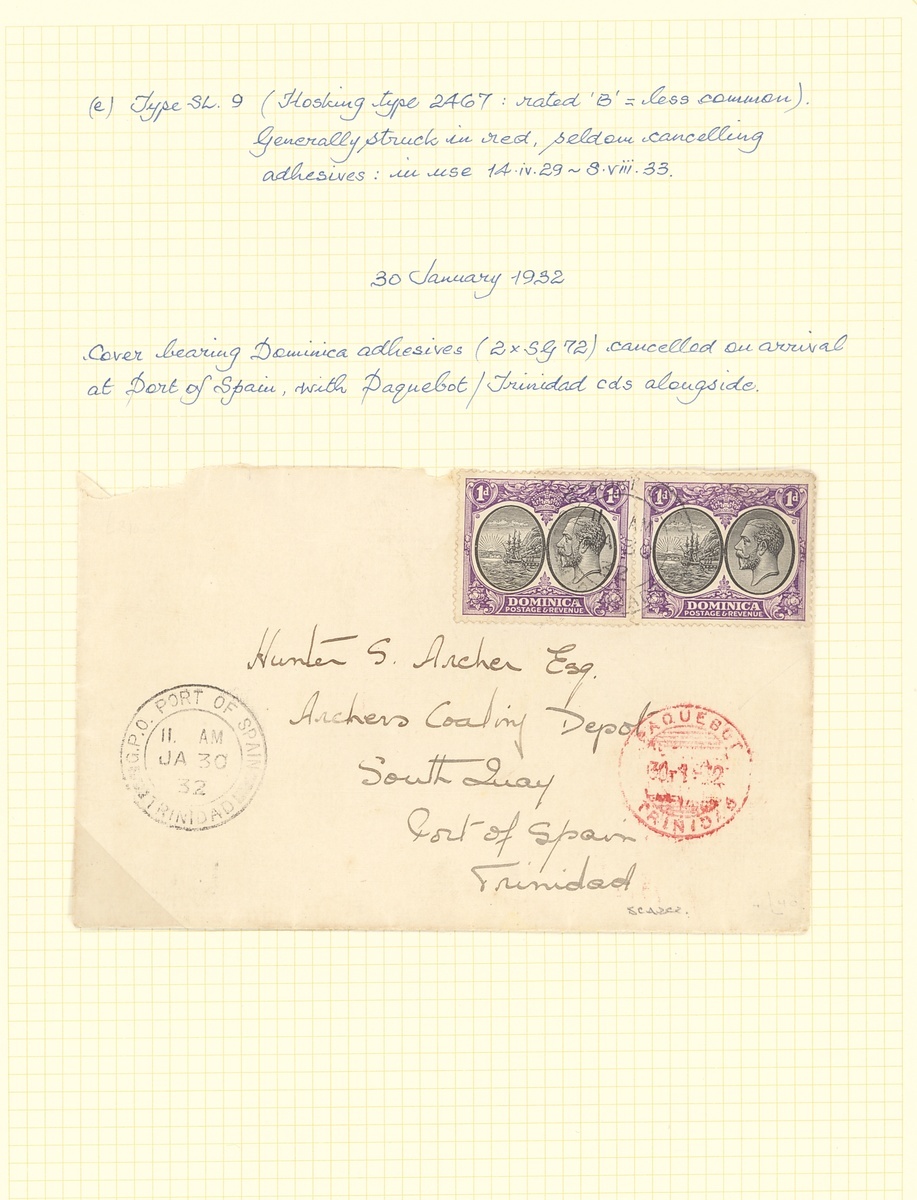 (e) Type SL. 9 (Hosking type 2467 : rated 'B' = less common).
Generally struck in red, seldom cancelling
adhesives : in use 14.iv.29 ~ 8.viii.33.
30 January 1932
Cover bearing Dominica adhesives (2 x SG 72) cancelled on arrival
at Port of Spain, with Paquebot / Trinidad cds alongside.
1d 1d
DOMINICA
POSTAGE & REVENUE
1d 1d
DOMINICA
POSTAGE & REVENUE
11 AM
30
Hunter S. Archer Esq.
Archers Coaling Depot
South Quay
Port of Spain
Trinidad
G.P.O. PORT OF SPAIN
11. AM
JA 30
32
TRINIDAD
PAQUEBOT
TRINIDAD
SCARCE.